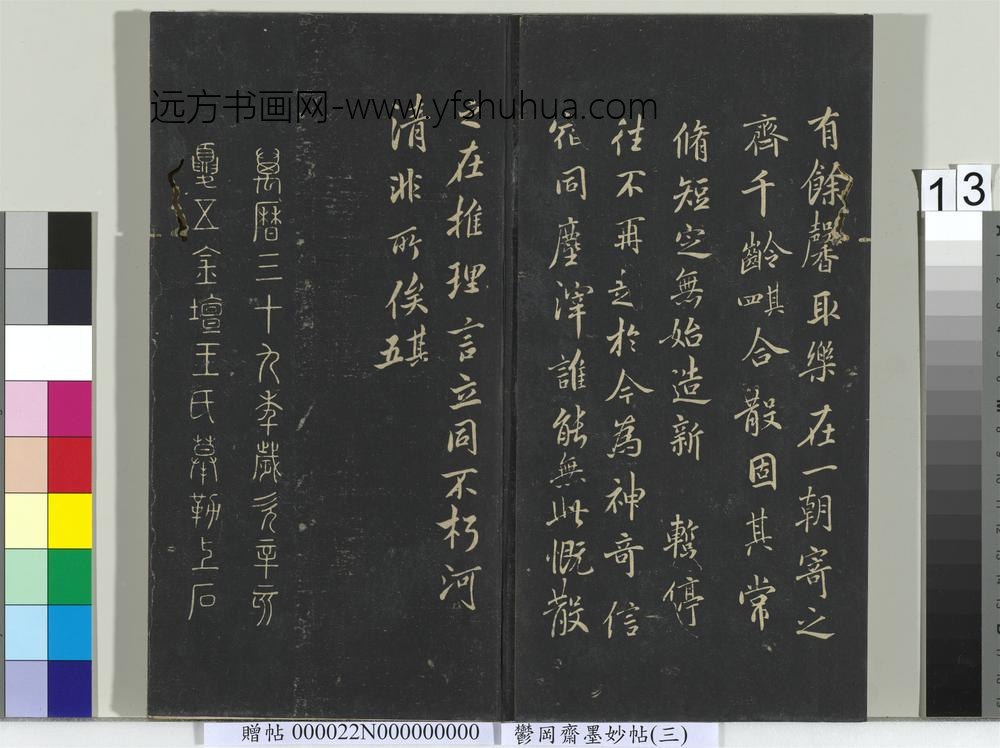 有餘馨取樂在一朝寄之
齊千齡其四合散固其常
脩短定無始造新暫停
往不再之於今為神奇信
宿同塵滓誰能無此慨散
之在推理言立同不朽河
清非所俟其五
萬曆三十九年歲次辛亥
夏五金壇王氏摹勒上石
远方书画网-www.yfshuhua.com
13
贈帖 000022N000000000
鬱岡齋墨妙帖(三)